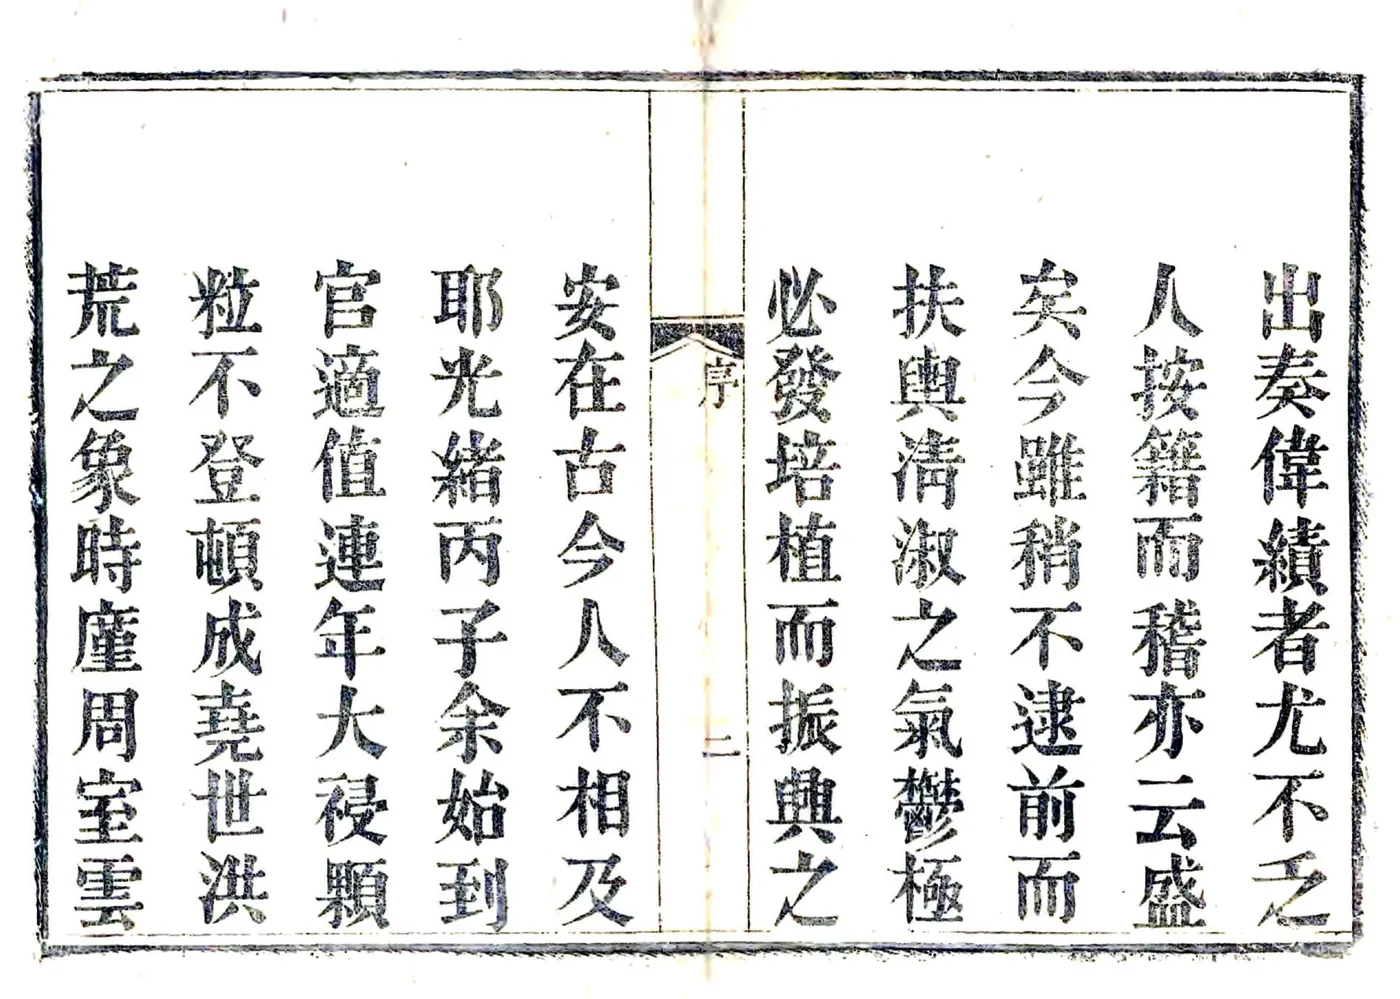 出奏偉績者尤不乏
人按籍而稽亦云盛
矣今雖稍不逮前而
扶輿淸淑之氣鬱極
必發培植而振興之
序
二
安在古今人不相及
耶光緒丙子余始到
官適值連年大祲顆
粒不登頓成堯世洪
荒之象時廑周室雲